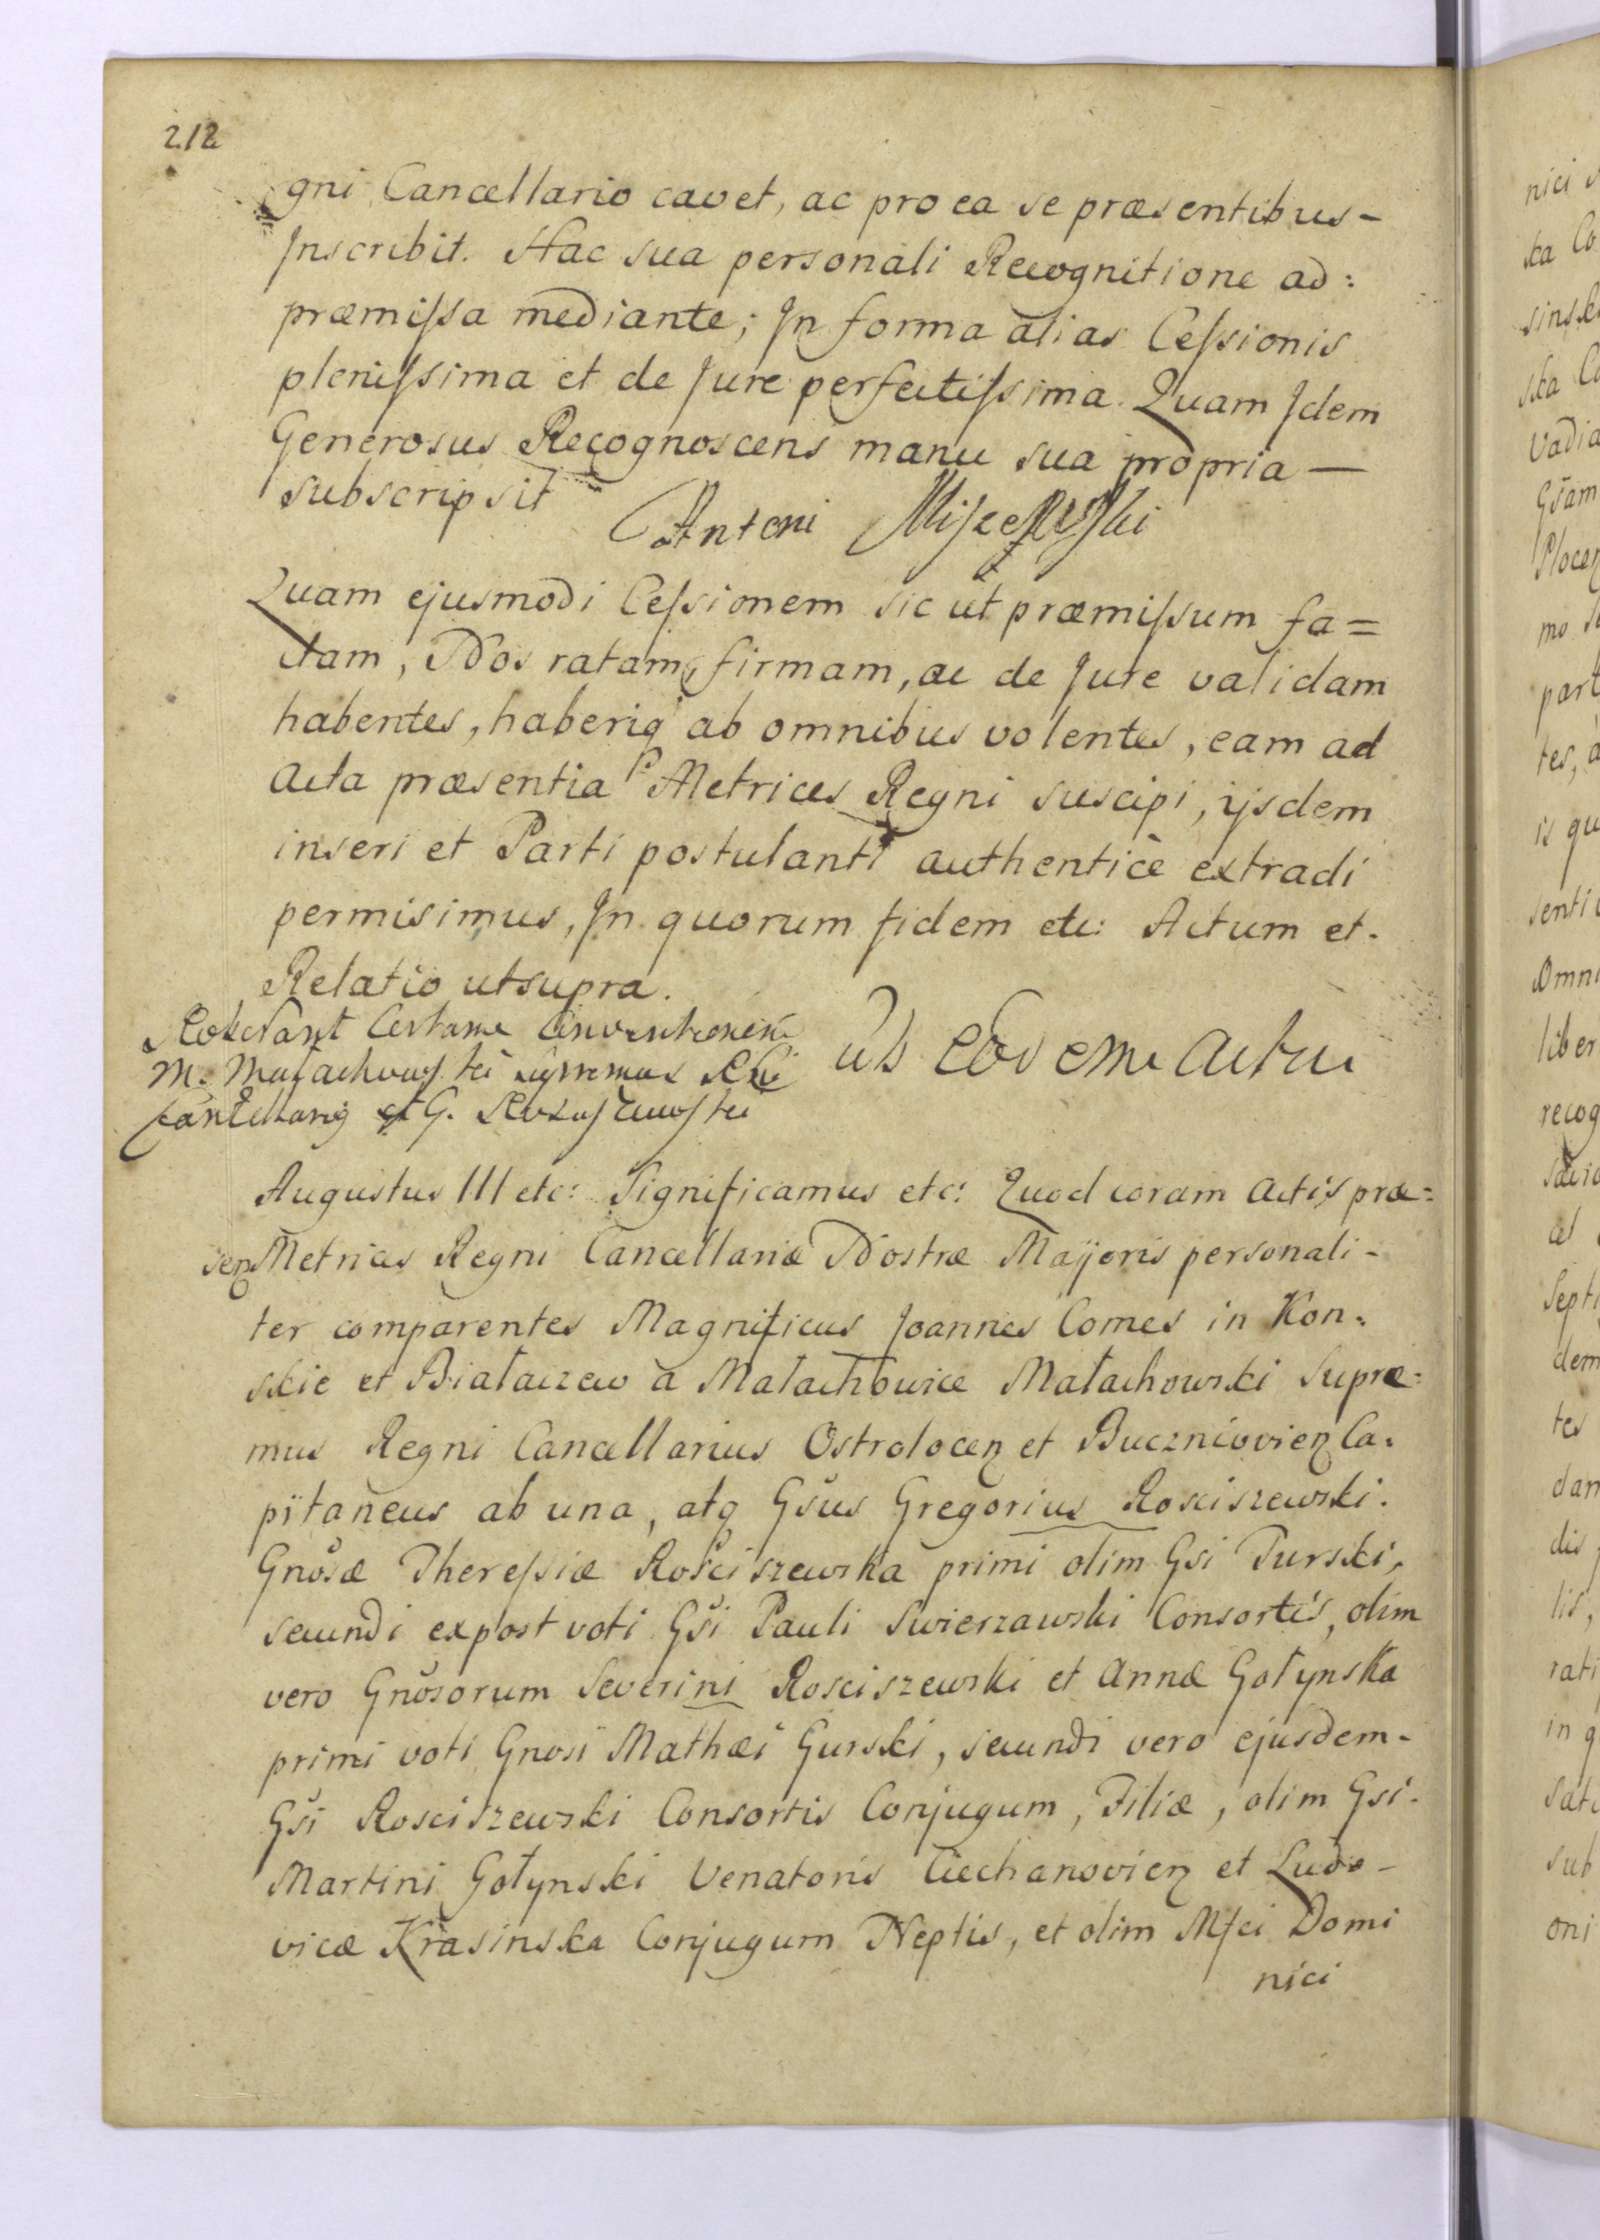 212
gni Cancellario cavet, ac pro ea se præsentibus-
Jnscribit. Hac sua personali Recognitione ad:
præmissa mediante; Jn forma alias Cessionis
plenissima et de Jure perfectissima. Quam Jdem
Generosus Recognoscens manu sua propria —
subscripsit
Antoni
Quam ejusmodi Cessionem sic ut præmissum fa=
ctam, Nos ratam, firmam, ac de Jure validam
habentes, haberiq ab omnibus volentes, eam ad
Acta præsentia Metrices Regni suscipi, ijsdem
inseri et Parti postulanti authenticè extradi
permisimus, Jn quorum fidem etc: Actum et.
Relatio utsupra.
M. Małachowski Supremus
Cancellariq et G. Rosciszewski
ut eodem Actu
Augustus III etc: Significamus etc: Quod coram Actis præ=
sen Metrices Regni Cancellariæ Nostræ Majoris personali-
ter comparentes Magnificus Joannes Comes in Kon:
skie et Białaczew à Małachowice Małachowski Supre:
mus Regni Cancellarius Ostrolocen et Buczniovien Ca:
pitaneus ab una, atq Gsus Gregorius Rosciszewski.
Gnosæ Theressiæ Rosciszewska primi olim Gsi Turski,
secundi expost voti Gsi Pauli Swierzawski Consortis, olim
vero Gnosorum Severini Rosciszewski et Annæ Gołynska
primi voti Gnosi Mathæi Gurski, secundi vero ejusdem-
Gsi Rosciszewski Consortis Conjugum, Filiæ, olim Gsi.
Martini Gołynski Venatoris Ciechanovien et Ludo-
vicæ Krasinska Conjugum Neptis, et olim Mfci Domi
nici